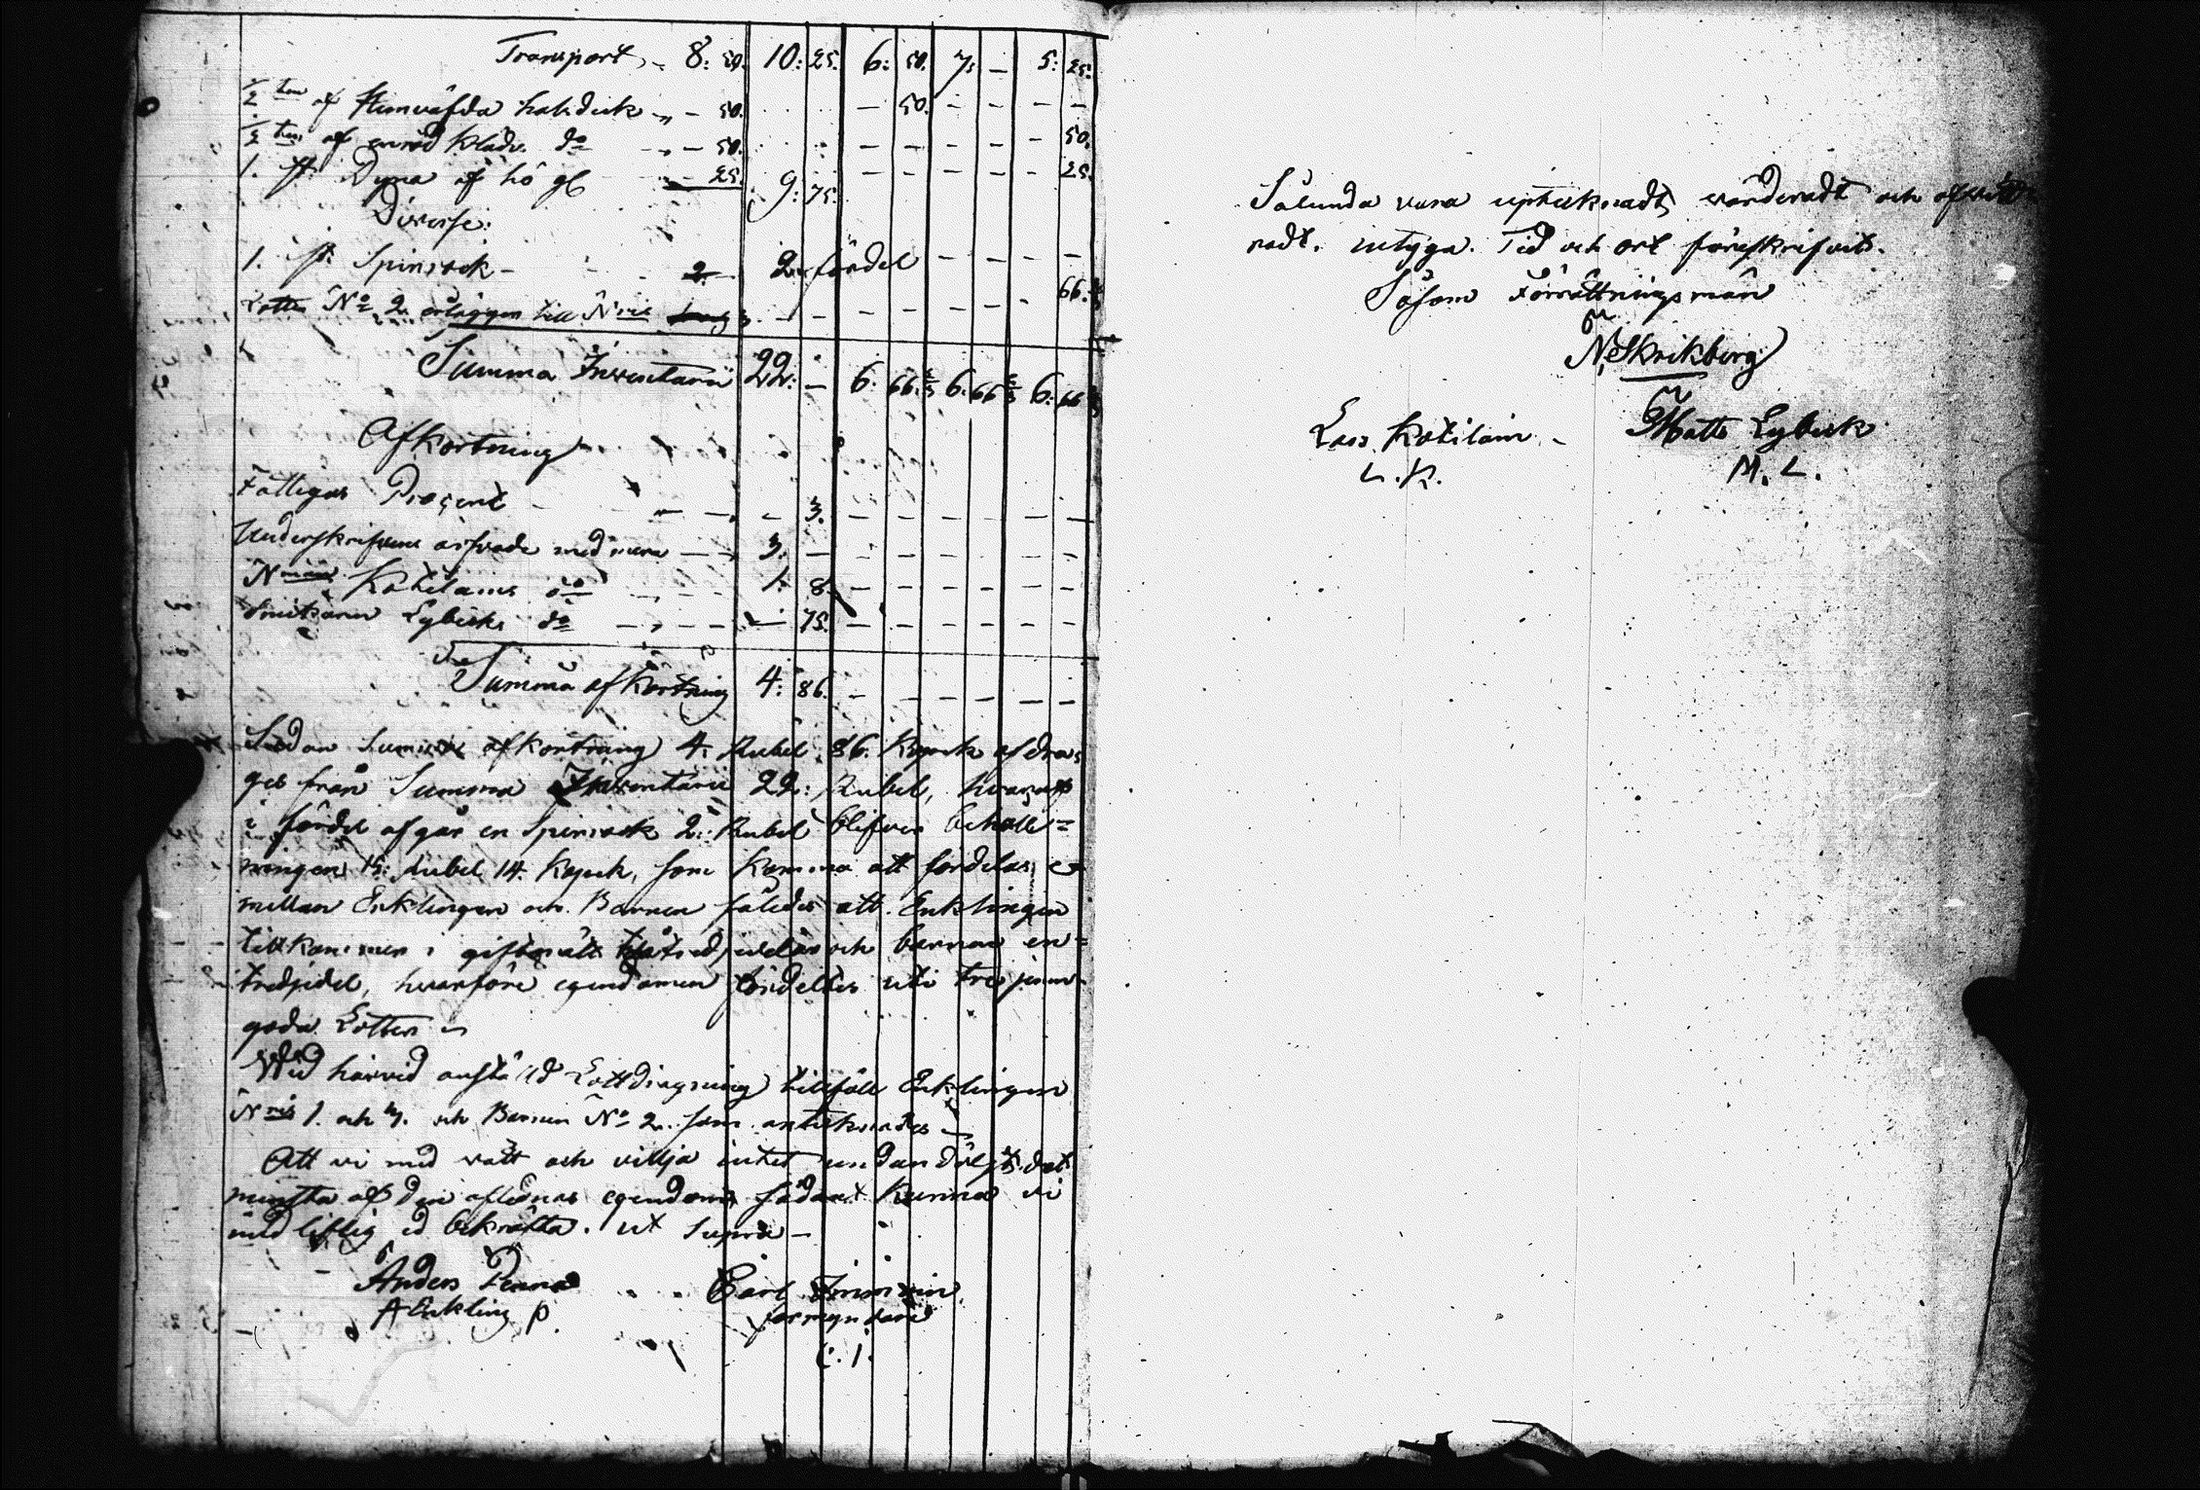 Transport, 8: 50. 10: 25. 6: 50. 7: — 5: 25.
½ af halsduk „ — 50. — 50. — — — —
½ af en röd Kläde do „ — 50. — — — — — 50.
1. st. Dyna af hö — 25. 9: 75. — — — — — 25.
Diverse:
1. st. Spinrock — 2. 2. fördel — — — —
Lotten No 2. till 66.
Summa Inventarii 22: — 6: 66 ⅔ 6: 66 ⅔ 6: 66 ⅔
Afkortning
Fattigas Procent — — — 3. — — — — — —
Underskrifvens arfvode med mera — — 3. — — — — — — —
Kotilains do 1. 8. — — — — — —
Lybecks do — — — — 75. — — — — — —
Summa afkortning 4: 86. — — — — — —
Sedan Summa afkortning 4. Rubel 86. Kopek afdra-
ges från Summa Inventarii 22: Rubel, hvaraf
i fördel afgår en Spinrock 2: Rubel blifver behåll=
ningen 15: Rubel 14. Kopek, som komma att fördelas e
mellan Enklingen och Barnen således att Enklingen
tillkommer i giftorätt två tredjedelar och barnen en=
tredjedel, hvarföre egendomen fördeltes uti tre jemn-
goda Lotter
Wid härvid anstäld Lottdragning tillföll Enklingen
Nris 1. och 3. och Barnen No 2. som antecknades
Att vi med vett och vilja intet undandölgt det
minsta af den aflednas egendom sådant kunna vi
med liflig ed bekräfta. ut supra —
Anders
A Enkling P
Carl Immonin
förmyndare
C. I.
Sålunda vara uptecknadt, värderadt och
radt. intyga. Tid och ort föreskrifvit.
Såsom Förrättningsmän
N. Skrikberg
Lars Kotilain — Matts Lybeck
L. K. M. L.